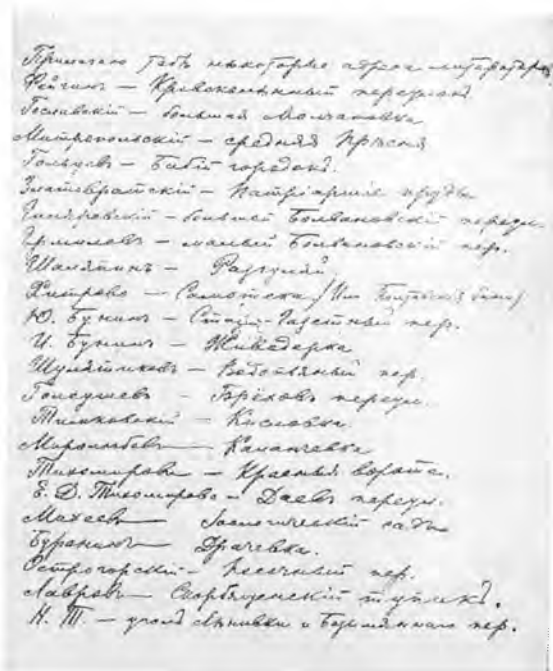 Примечаю тебѣ некоторые адреса литераторовъ
Фейгинъ — Кривоколѣнный переулокъ.
Гославскій — большая Молчановка
Митропольскій — средняя Прѣсня
Гольцевъ — Бабій городокъ.
Златовратскій — Патріаршіе пруды
Гиляровскій — большой Болвановскій переул.
Ермиловъ — малый Болвановскій пер.
Шаляпинъ — Разгуляй
Хитрово — Самотека / Или
Ю. Бунинъ — Старо-Газетный пер.
И. Бунинъ — Живодерка
Шулятиковъ — пер.
Голоушевъ — Брёховъ переул.
Тимковскій — Кисловка.
Миролюбовъ — Каланчевка
Тихомирова — Красныя ворота.
Е. Д. Тихомирова — Даевъ переул.
Махеевъ — Зоологическій садъ
Буренинъ — Драчевка.
Острогорскій — Песочный пер.
Лавровъ — Скорбященскій тупикъ.
Н. Т. — уголъ Лѣнивки и Безымяннаго пер.